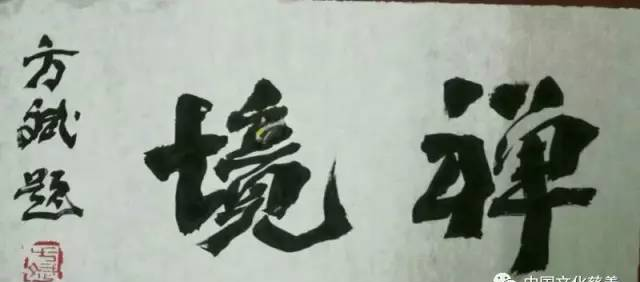 禅境
方斌题
中国文化慈善